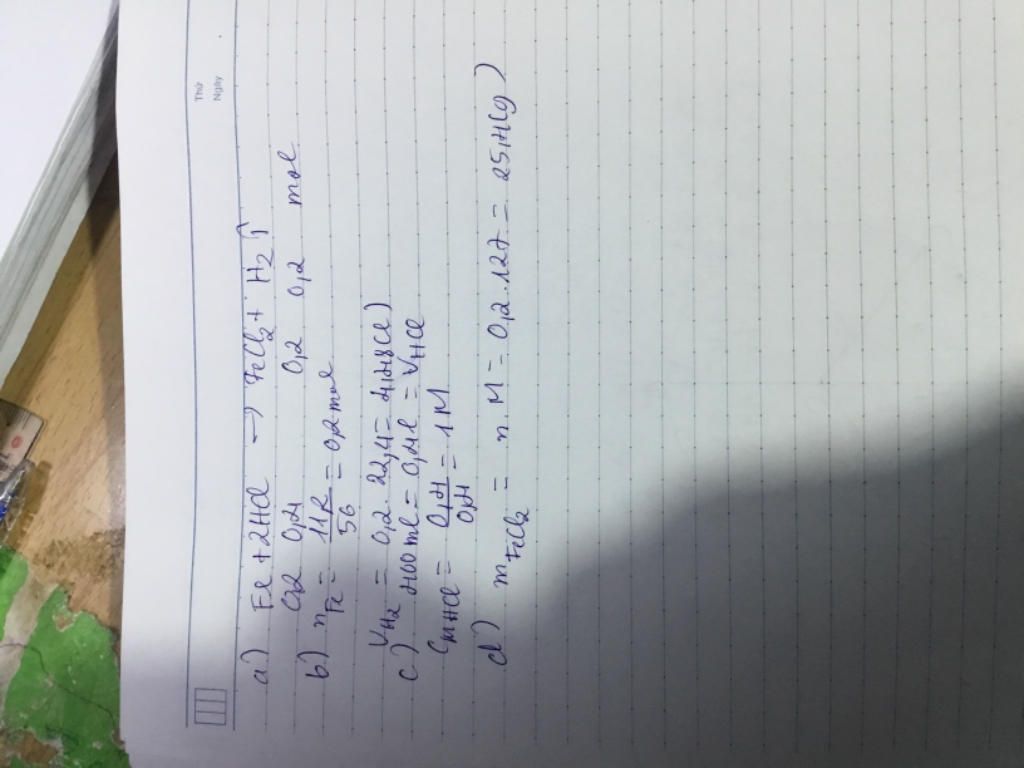 Thứ
Ngày
a) Fe + 2HCl → FeCl2 + H2 ↑
0,2 0,4 0,2 0,2 mol
b) nFe = 11,2/56 = 0,2 mol
VH2 = 0,2 . 22,4 = 4,48 (l)
c) 400 ml = 0,4 l = VHCl
CMHCl = 0,4/0,4 = 1 M
d) mFeCl2 = n . M = 0,2 . 127 = 25,4 (g)